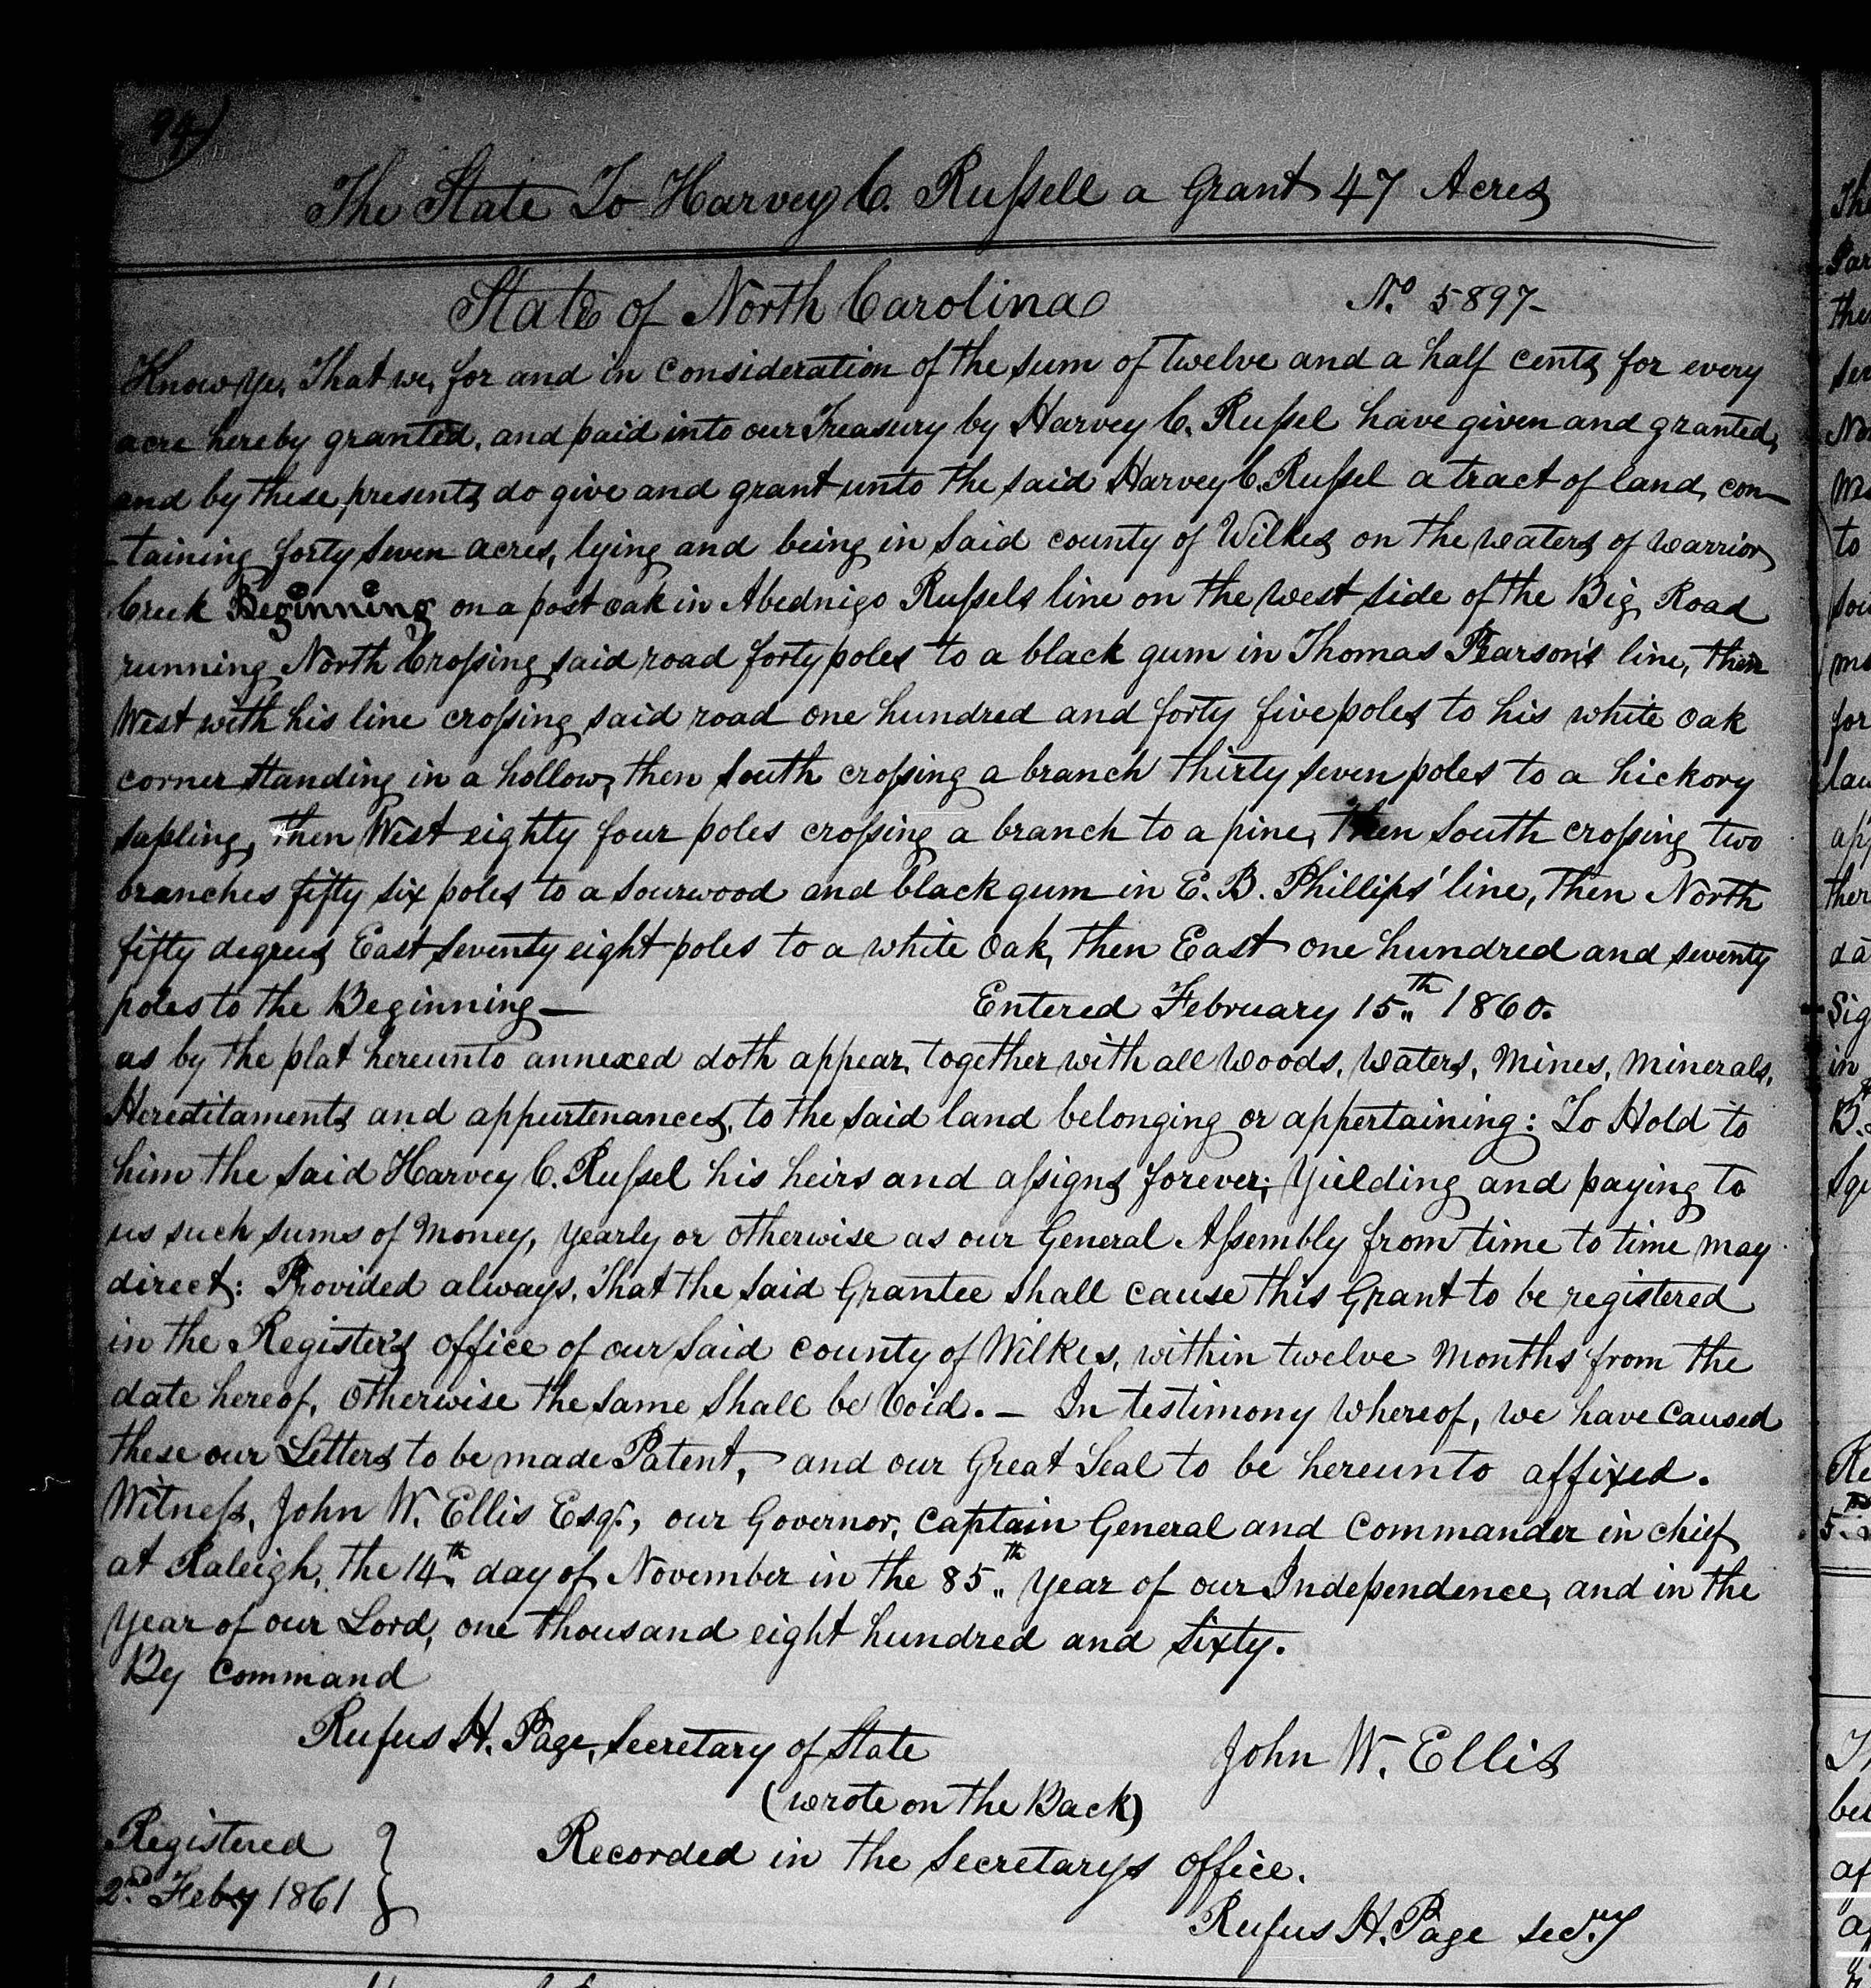 94)
The State To Harvey C. Russell a Grant 47 Acres
State of North Carolina No. 5897-
Know Ye, That we, for and in consideration of the sum of twelve and a half cents for every
acre hereby granted, and paid into our Treasury by Harvey C. Russel have given and granted,
and by these presents do give and grant unto the said Harvey C. Russel a tract of land, con-
-taining forty seven acres, lying and being in said county of Wilkes on the waters of warrior
Creek Beginning on a post oak in Abednigo Russels line on the west side of the Big Road
running North Crossing said road forty poles to a black gum in Thomas Pearson's line, then
West with his line crossing said road one hundred and forty five poles to his white oak
corner standing in a hollow, then South crossing a branch thirty seven poles to a hickory
sapling, then West eighty four poles crossing a branch to a pine, then South crossing two
branches fifty six poles to a sourwood and black gum in E. B. Phillips' line, then North
fifty degrees East seventy eight poles to a white oak, then East one hundred and seventy
poles to the Beginning— Entered February 15th 1860.
as by the plat hereunto annexed doth appear, together with all woods, waters, mines, minerals,
Hereditaments and appurtenances, to the said land belonging or appertaining: To Hold to
him the said Harvey C. Russel his heirs and assigns forever; Yielding and paying to
us such sums of money, yearly or otherwise as our General Assembly from time to time may
direct: Provided always, That the said Grantee shall cause this Grant to be registered
in the Register's office of our said county of Wilkes, within twelve months from the
date hereof, otherwise the same shall be Void. — In testimony whereof, we have caused
these our Letters to be made Patent, and our Great Seal to be hereunto affixed.
Witness, John W. Ellis Esqr., our Governor, Captain General and Commander in chief
at Raleigh, the 14th day of November in the 85th year of our Independence, and in the
year of our Lord, one thousand eight hundred and sixty.
By command
Rufus H. Page, Secretary of State John W. Ellis
(wrote on the Back)
Registered } Recorded in the Secretarys office.
2nd Feby 1861
Rufus H. Page Secry